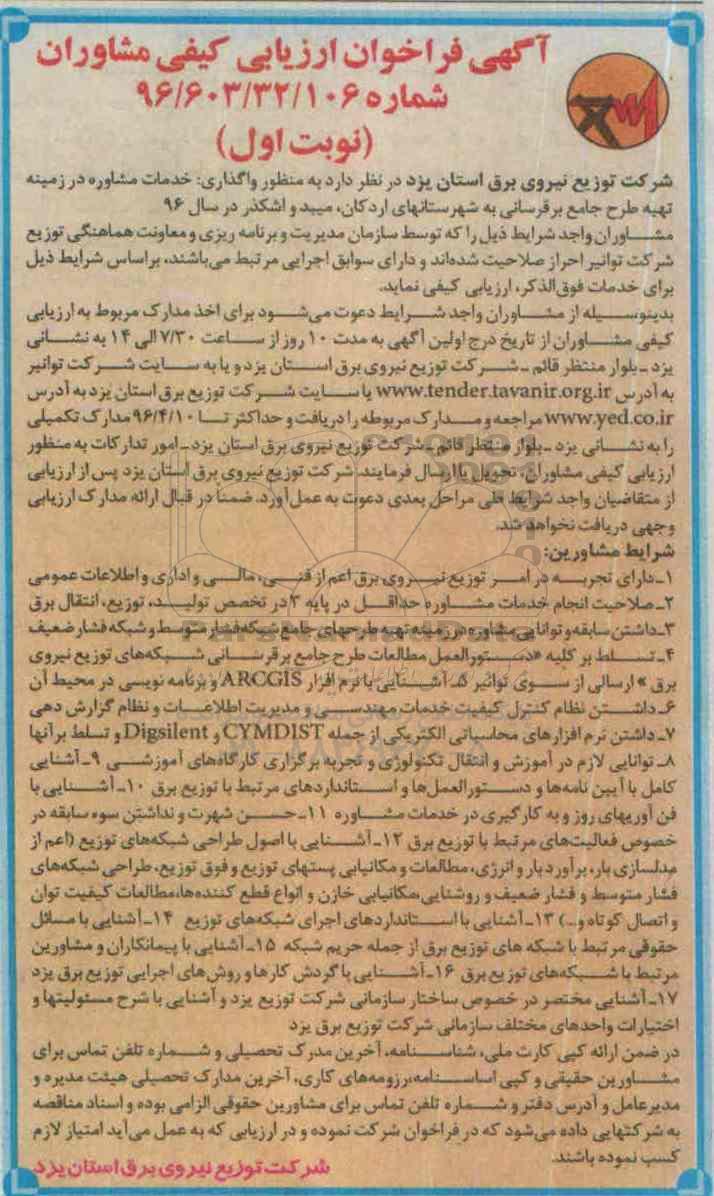 آگهی فراخوان ارزیابی کیفی مشاوران
شماره ۹۶/۶۰۳/۳۲/۱۰۶
(نوبت اول)
شرکت توزیع نیروی برق استان یزد در نظر دارد به منظور واگذاری: خدمات مشاوره در زمینه
تهیه طرح جامع برقرسانی به شهرستانهای اردکان، میبد و اشکذر در سال ۹۶
مشاوران واجد شرایط ذیل را که توسط سازمان مدیریت و برنامه ریزی و معاونت هماهنگی توزیع
شرکت توانیر احراز صلاحیت شده‌اند و دارای سوابق اجرایی مرتبط می‌باشند، براساس شرایط ذیل
برای خدمات فوق‌الذکر، ارزیابی کیفی نماید.
بدینوسیله از مشاوران واجد شرایط دعوت می‌شود برای اخذ مدارک مربوط به ارزیابی
کیفی مشاوران از تاریخ درج اولین آگهی به مدت ۱۰ روز از ساعت ۷/۳۰ الی ۱۴ به نشانی
یزد ـ بلوار منتظر قائم ـ شرکت توزیع نیروی برق استان یزد و یا به سایت شرکت توانیر
به آدرس www.tender.tavanir.org.ir یا سایت شرکت توزیع برق استان یزد به آدرس
www.yed.co.ir مراجعه و مدارک مربوطه را دریافت و حداکثر تا ۹۶/۴/۱۰ مدارک تکمیلی
را به نشانی یزد ـ بلوار منتظر قائم ـ شرکت توزیع نیروی برق استان یزد ـ امور تدارکات به منظور
ارزیابی کیفی مشاوران، تحویل یا ارسال فرمایند. شرکت توزیع نیروی برق استان یزد پس از ارزیابی
از متقاضیان واجد شرایط طی مراحل بعدی دعوت به عمل آورد. ضمناً در قبال ارائه مدارک ارزیابی
وجهی دریافت نخواهد شد.
شرایط مشاورین:
۱ـ دارای تجربه در امر توزیع نیروی برق اعم از فنی، مالی و اداری و اطلاعات عمومی
۲ـ صلاحیت انجام خدمات مشاوره حداقل در پایه ۳ در تخصص تولید، توزیع، انتقال برق
۳ـ داشتن سابقه و توانایی مشاوره در زمینه تهیه طرحهای جامع شبکه فشار متوسط و شبکه فشار ضعیف
۴ـ تسلط بر کلیه «دستورالعمل مطالعات طرح جامع برقرسانی شبکه‌های توزیع نیروی
برق» ارسالی از سوی توانیر ۵ـ آشنایی با نرم افزار ARCGIS و برنامه نویسی در محیط آن
۶ـ داشتن نظام کنترل کیفیت خدمات مهندسی و مدیریت اطلاعات و نظام گزارش دهی
۷ـ داشتن نرم افزارهای محاسباتی الکتریکی از جمله CYMDIST و Digsilent و تسلط بر آنها
۸ـ توانایی لازم در آموزش و انتقال تکنولوژی و تجربه برگزاری کارگاه‌های آموزشی ۹ـ آشنایی
کامل با آیین نامه‌ها و دستورالعمل‌ها و استانداردهای مرتبط با توزیع برق ۱۰ـ آشنایی با
فن آوریهای روز و به کارگیری در خدمات مشاوره ۱۱ـ حسن شهرت و نداشتن سوء سابقه در
خصوص فعالیت‌های مرتبط با توزیع برق ۱۲ـ آشنایی با اصول طراحی شبکه‌های توزیع (اعم از
مدلسازی بار، برآورد بار و انرژی، مطالعات و مکانیابی پستهای توزیع و فوق توزیع، طراحی شبکه‌های
فشار متوسط و فشار ضعیف و روشنایی، مکانیابی خازن و انواع قطع کننده‌ها، مطالعات کیفیت توان
و اتصال کوتاه و..) ۱۳ـ آشنایی با استانداردهای اجرای شبکه‌های توزیع ۱۴ـ آشنایی با مسائل
حقوقی مرتبط با شبکه های توزیع برق از جمله حریم شبکه ۱۵ـ آشنایی با پیمانکاران و مشاورین
مرتبط با شبکه‌های توزیع برق ۱۶ـ آشنایی با گردش کارها و روش‌های اجرایی توزیع برق یزد
۱۷ـ آشنایی مختصر در خصوص ساختار سازمانی شرکت توزیع یزد و آشنایی با شرح مسئولیتها و
اختیارات واحدهای مختلف سازمانی شرکت توزیع برق یزد
در ضمن ارائه کپی کارت ملی، شناسنامه، آخرین مدرک تحصیلی و شماره تلفن تماس برای
مشاورین حقیقی و کپی اساسنامه، رزومه‌های کاری، آخرین مدارک تحصیلی هیئت مدیره و
مدیرعامل و آدرس دفتر و شماره تلفن تماس برای مشاورین حقوقی الزامی بوده و اسناد مناقصه
به شرکتهایی داده می‌شود که در فراخوان شرکت نموده و در ارزیابی که به عمل می‌آید امتیاز لازم
کسب نموده باشند.
شرکت توزیع نیروی برق استان یزد